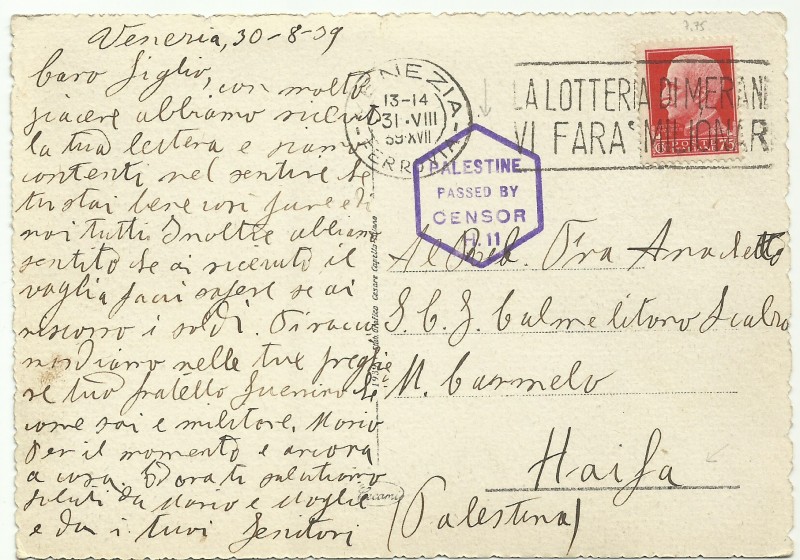 7,75
Venezia, 30-8-39
Caro figlio, con molto
piacere abbiamo ricevuto
la tua lettera e siamo
contenti nel sentire che
tu stai bene cosi pure è di
noi tutti. Inoltre abbiamo
sentito che ai ricevuto il
vaglia facci sapere se ai
riscosso i soldi. Ti racco
mandiamo nelle tue preghie
re tuo fratello Guerrino che
come sai e militare. Mario
per il momento e ancora
a casa. Ora ti salutiamo
saluti da Mario e Moglie
e da i tuoi Genitori
VENEZIA
13-14
31·VIII
39·XVII
FERROVIA
LA LOTTERIA DI MERAN
VI FARA' MILIONAR
75
PALESTINE
PASSED BY
CENSOR
H. 11
Al Rev. Fra Anacleto
S. C. I. Calmelitano Scalzo
M. Carmelo
Haifa
(Palestina)
Cesare Capello